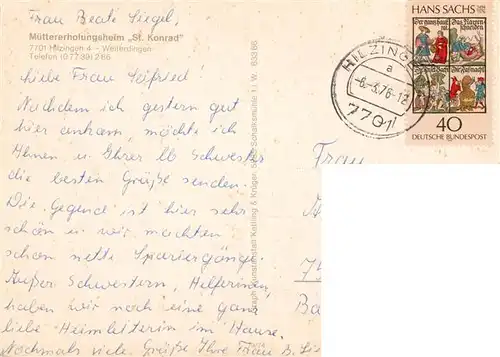 Frau Beate Siegel,
Müttererholungsheim „St. Konrad"
7701 Hilzingen 4 – Weiterdingen
Telefon (0 77 39) 2 86
Liebe Frau Seifried!
Nachdem ich gestern gut
hier ankam, möchte ich
Ihnen u. Ihrer lb Schwester
die besten Grüße senden.
Die Gegend ist hier sehr
schön u. wir machten
schon nette Spaziergänge.
Außer Schwestern, Helferinnen
haben wir noch eine ganz
liebe Heimleiterin im Hause.
Nochmals viele Grüße Ihre Frau B. Si
Kunstanstalt Kettling & Krüger,
HILZINGEN
a
-6.-3.76-12
7701
HANS SACHS
40
DEUTSCHE BUNDESPOST
Frau